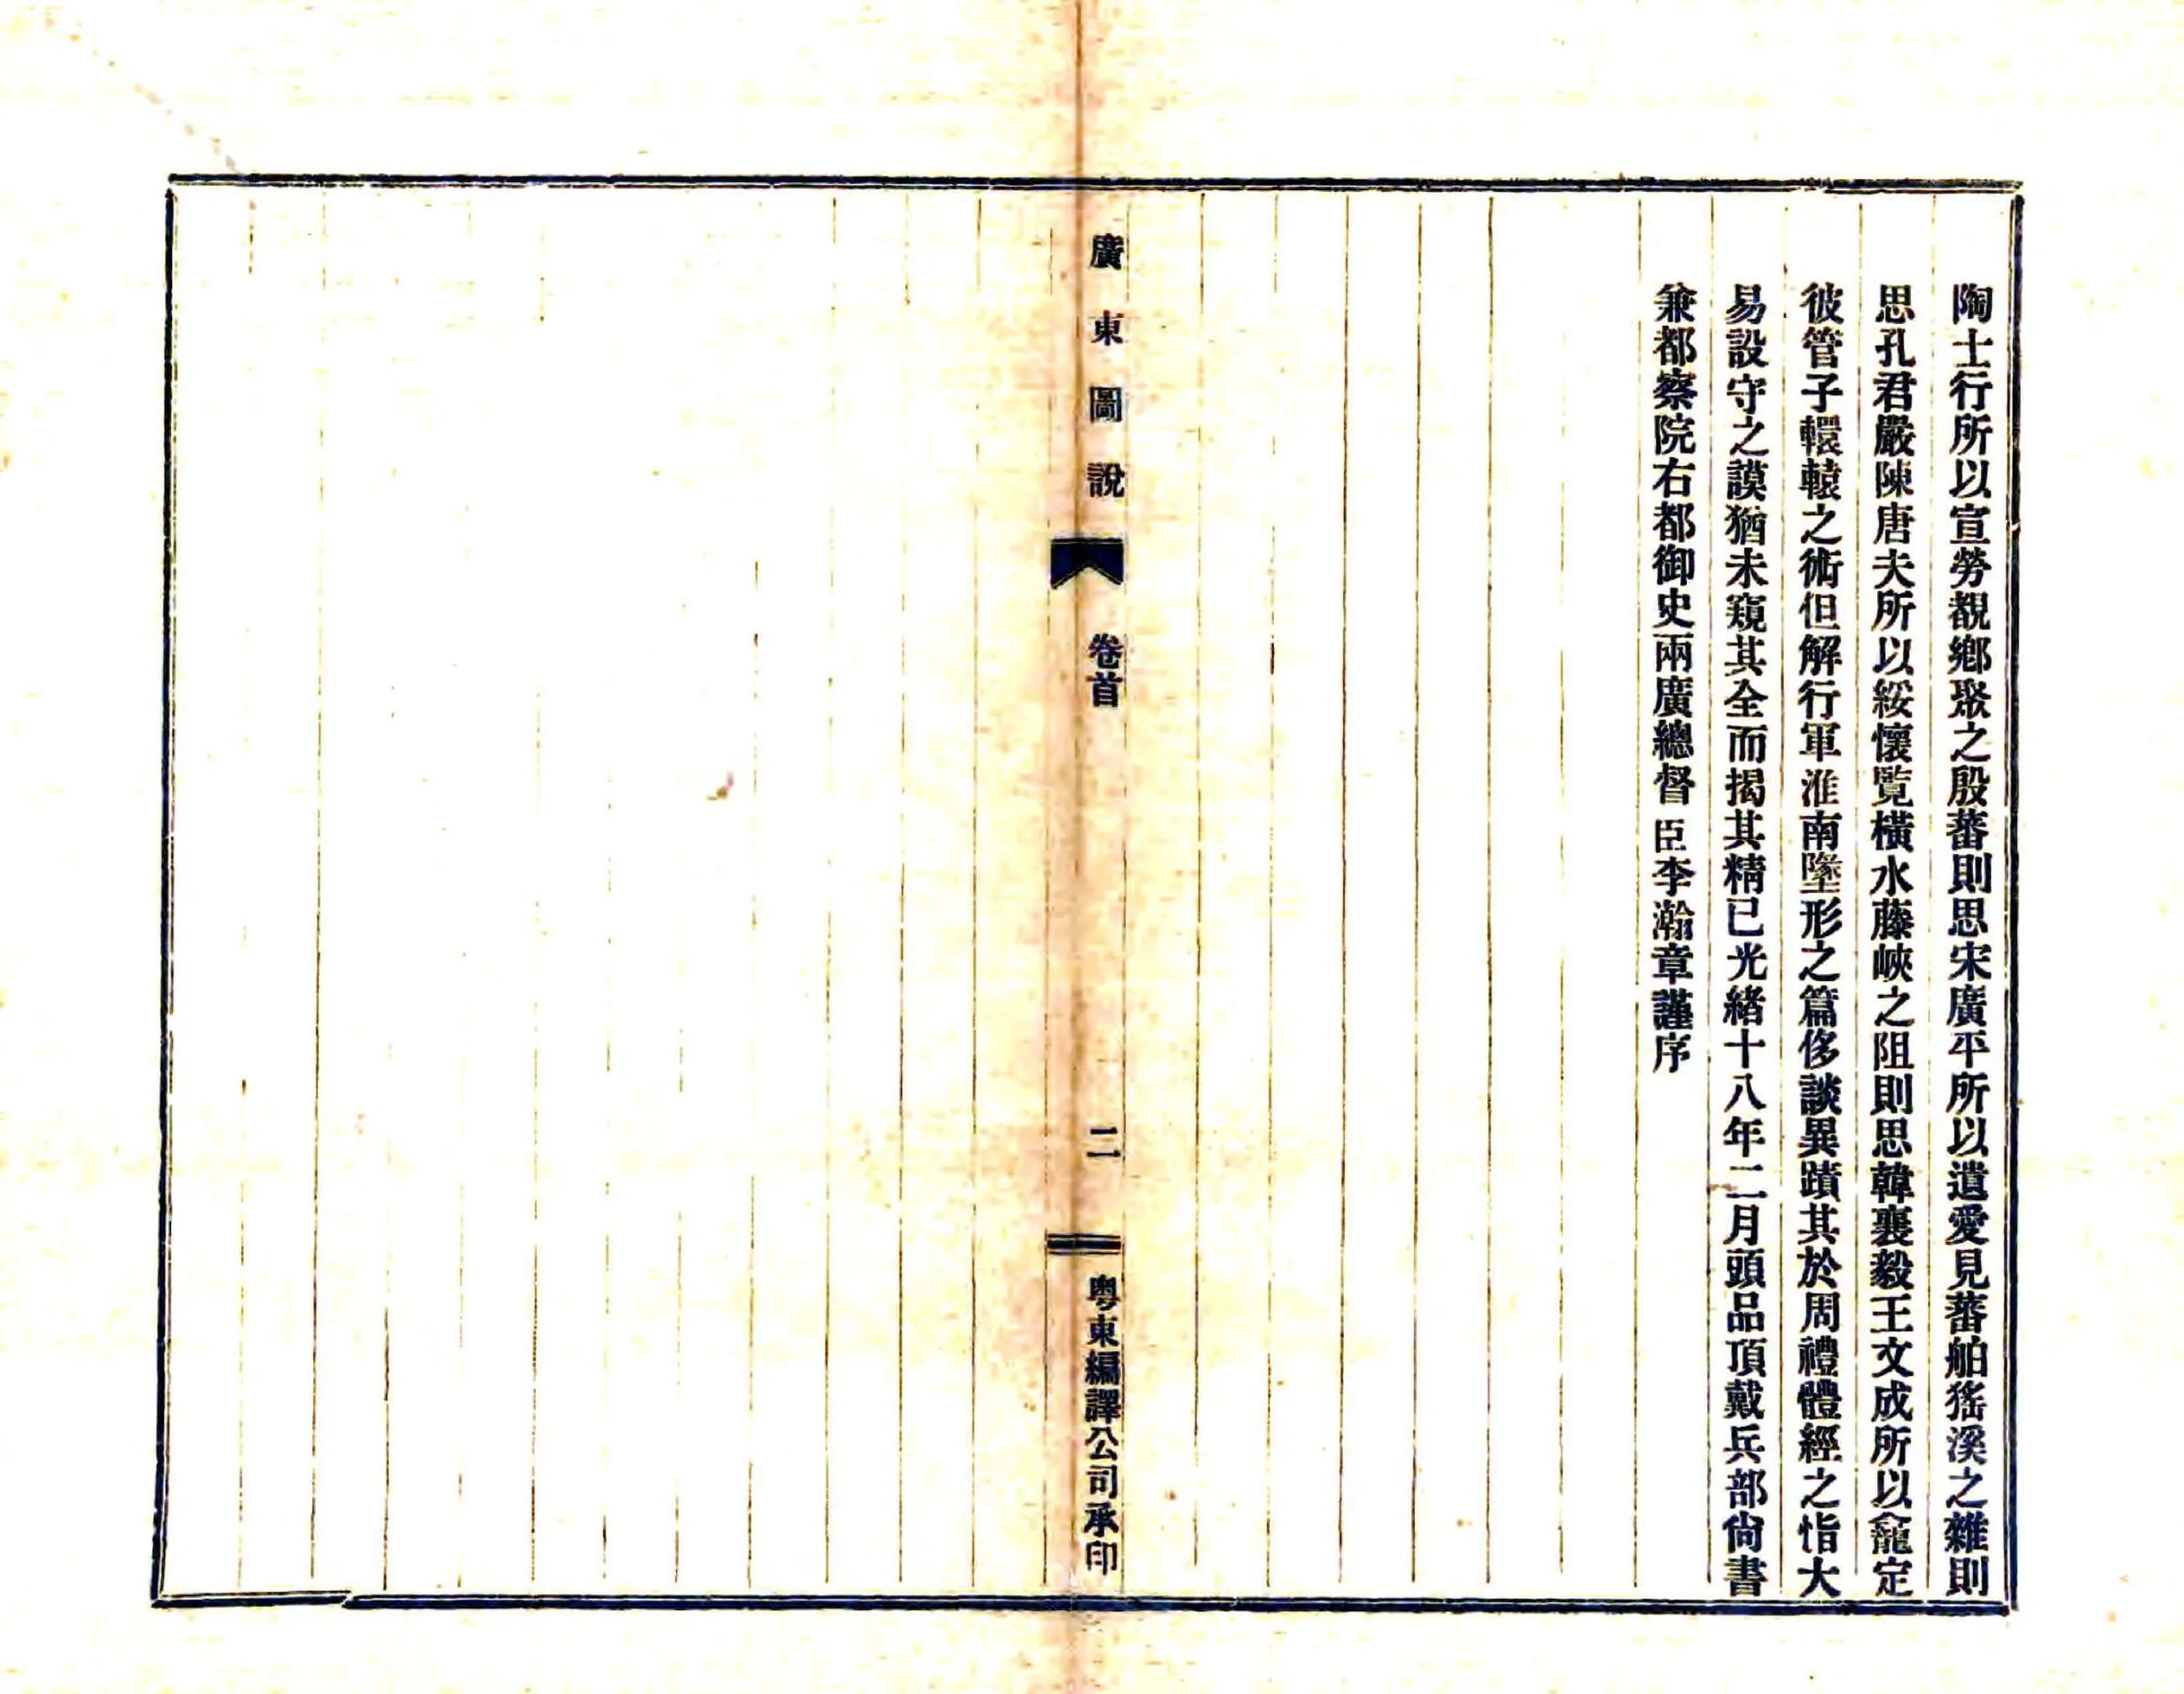 陶士行所以宣勞覩鄉聚之殷蕃則思宋廣平所以遺愛見蕃舶猺溪之雜則
思孔君嚴陳唐夫所以綏懷覽橫水藤峽之阻則思韓襄毅王文成所以龕定
彼管子轘轅之術但解行軍淮南墬形之篇侈談異蹟其於周禮體經之恉大
易設守之謨猶未窺其全而揭其精已光緒十八年二月頭品頂戴兵部尙書
兼都察院右都御史兩廣總督臣李瀚章謹序
廣東圖說
卷首
二
粵東編譯公司承印